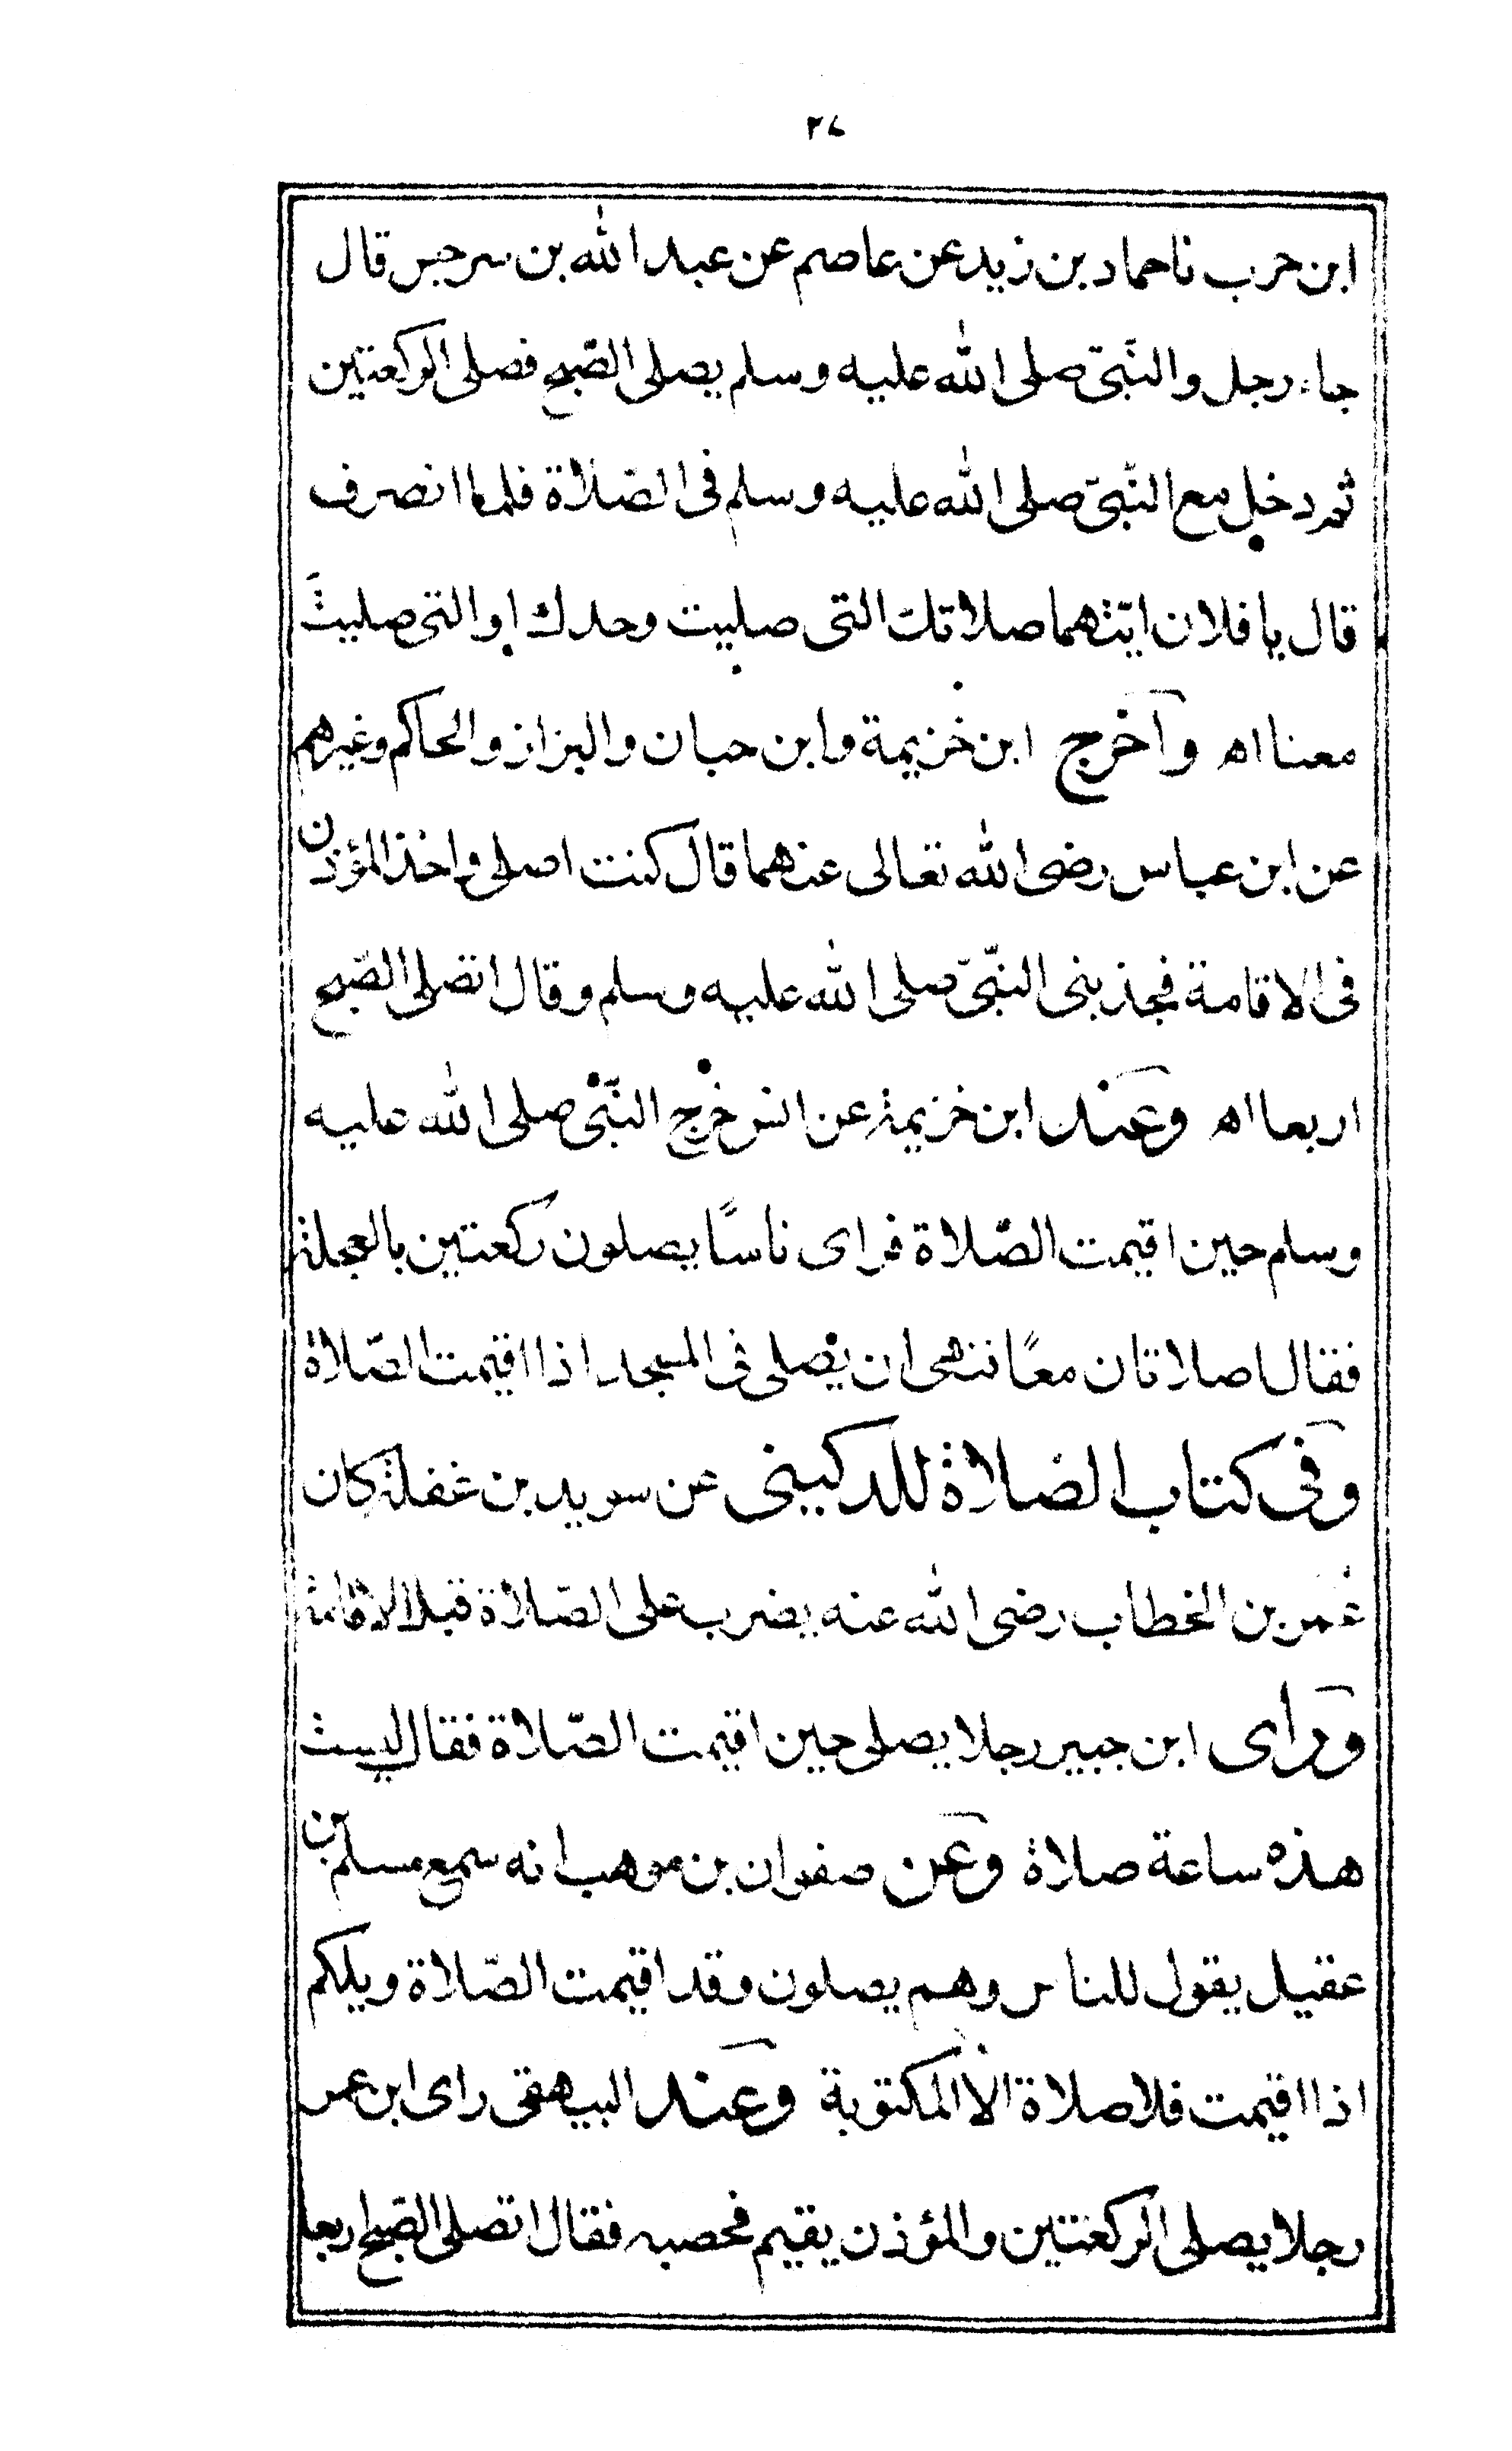 ٢٧
ابن حرب نا حماد بن زيد عن عاصم عن عبد الله بن سرجس قال
جاء رجل والنّبىّ صلى الله عليه وسلم يصلى الصّبح فصلى الركعتين
ثم دخل مع النّبىّ صلى الله عليه وسلم فى الصّلاة فلما انصرف
قال يا فلان ايّتهما صلاتك التى صليت وحدك او التى صليتَ
معنا اه وآخرج ابن خزيمة وابن حبان والبزاز والحاكم وغيرهم
عن ابن عباس رضى الله تعالى عنهما قال كنت اصلى واخذ المؤذن
فى الاقامة فجذبنى النّبىّ صلى الله عليه وسلم وقال اتصلى الصّبح
اربعا اه وعند ابن خزيمة عن انس خرج النّبى صلى الله عليه
وسلم حين اقيمت الصّلاة فراى ناسًا يصلون ركعتين بالعجلة
فقال اصلاتان معًا فنهى ان يصلى فى المسجد اذا اقيمت الصّلاة
وفى كتاب الصّلاة للدكينى عن سويد بن غفلة كان
عُمر بن الخطاب رضى الله عنه يضرب على الصّلاة قبل الاقامة
وراى ابن جبير رجلا يصلى حين اقيمت الصّلاة فقال ليست
هذه ساعة صلاة وعن صفوان بن موهب انه سمع مسلم بن
عقيل يقول للناس وهم يصلون وقد اقيمت الصّلاة ويلكم
اذا اقيمت فلا صلاة الا المكتوبة وعند البيهقى راى ابن عمر
رجلا يصلى الركعتين والمؤذن يقيم فحصبه فقال اتصلى الصّبح اربعا